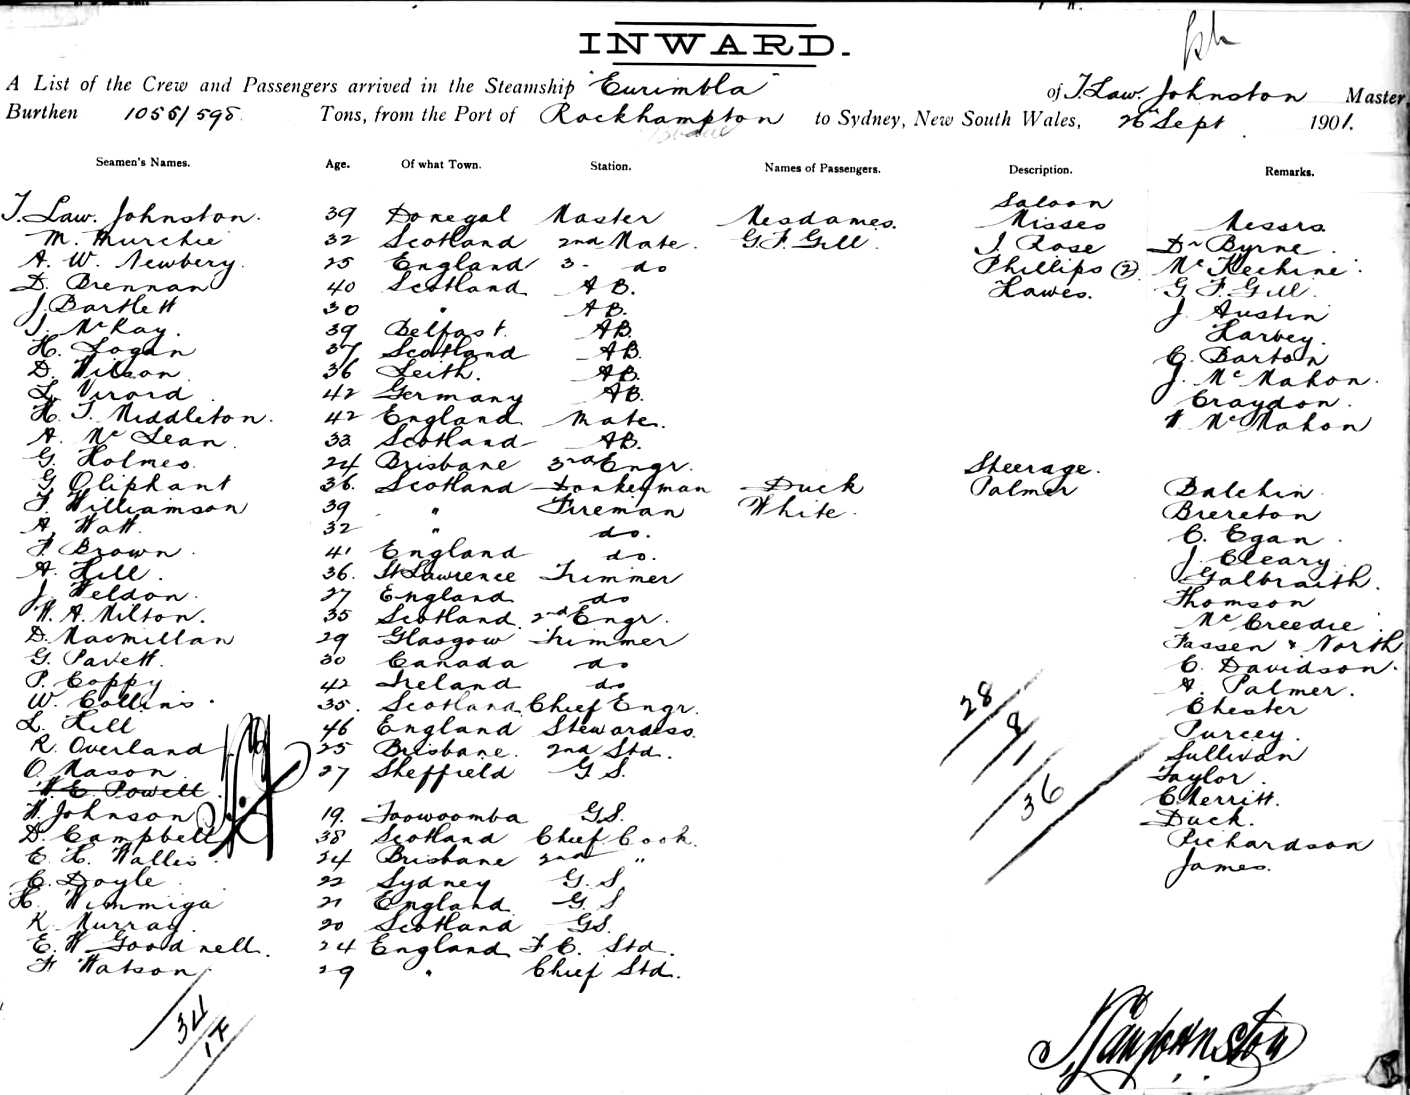 INWARD.
A List of the Crew and Passengers arrived in the Steamship "Eurimbla" of T. Law. Johnston Master,
Burthen 1055/598 Tons, from the Port of Rockhampton to Sydney, New South Wales, 26 Sept 1901.
Seamen's Names. Age. Of what Town. Station. Names of Passengers. Description. Remarks.
Saloon
T. Law. Johnston. 39 Donegal Master Mesdames. Misses Messrs.
M. Murchie 32 Scotland 2nd Mate. G. F. Gill. J. Rose Dr Byrne
A. W. Newbery. 25 England 3 - do Phillips (2) McKechine
D. Brennan 40 Scotland A B. Hawes. G F. Gill
J. Bartlett 30 " A B. J. Austin
J. McKay. 39 Belfast. AB. Harvey.
H. Logan 37 Scotland AB. G. Barton
D. Wilson 36 Leith. AB. J. McMahon.
L. Virord 42 Germany AB. Craydon.
H. T. Middleton. 42 England Mate. W McMahon
A. McLean. 33 Scotland AB.
G. Holmes. 24 Brisbane 3rd Engr. Steerage.
G Oliphant 36. Scotland Donkeyman Duck Palmer Balchin
F. Williamson 39 " Fireman White. Brereton
A. Watt. 32 " do. C. Egan
F. Brown. 41 England do. J. Cleary
A. Hill. 36. St Lawrence Trimmer Galbraith.
J. Weldon. 27 England do Thomson
W. A. Milton. 35 Scotland. 2nd Engr. McCreedie
D. Macmillan 29 Glasgow Trimmer Fassen & North
G. Pavett. 30 Canada do C. Davidson.
P. Coppy 42 Ireland do A. Palmer.
W. Collins. 35. Scotland Chief Engr. Chester
L. Hill 46 England Stewardess. Purcey.
R. Overland 25 Brisbane. 2nd Std. Sullivan
O Mason 27 Sheffield G S. Taylor.
W. E. Powell. C. Merritt.
W. Johnson 19. Toowoomba G.S. Duck.
D. Campbell 38 Scotland Chief Cook. Richardson
E. H. Wallis. 24 Brisbane 2nd " James.
C. Doyle. 22 Sydney G. S.
H. Wimmiga 21 England G. S
K. Murray. 20 Scotland GS.
E. W Goodnell. 24 England F. C. Std.
F. Watson 29 " Chief Std.
28
8
1
36
34
1 F
T. Law Johnston